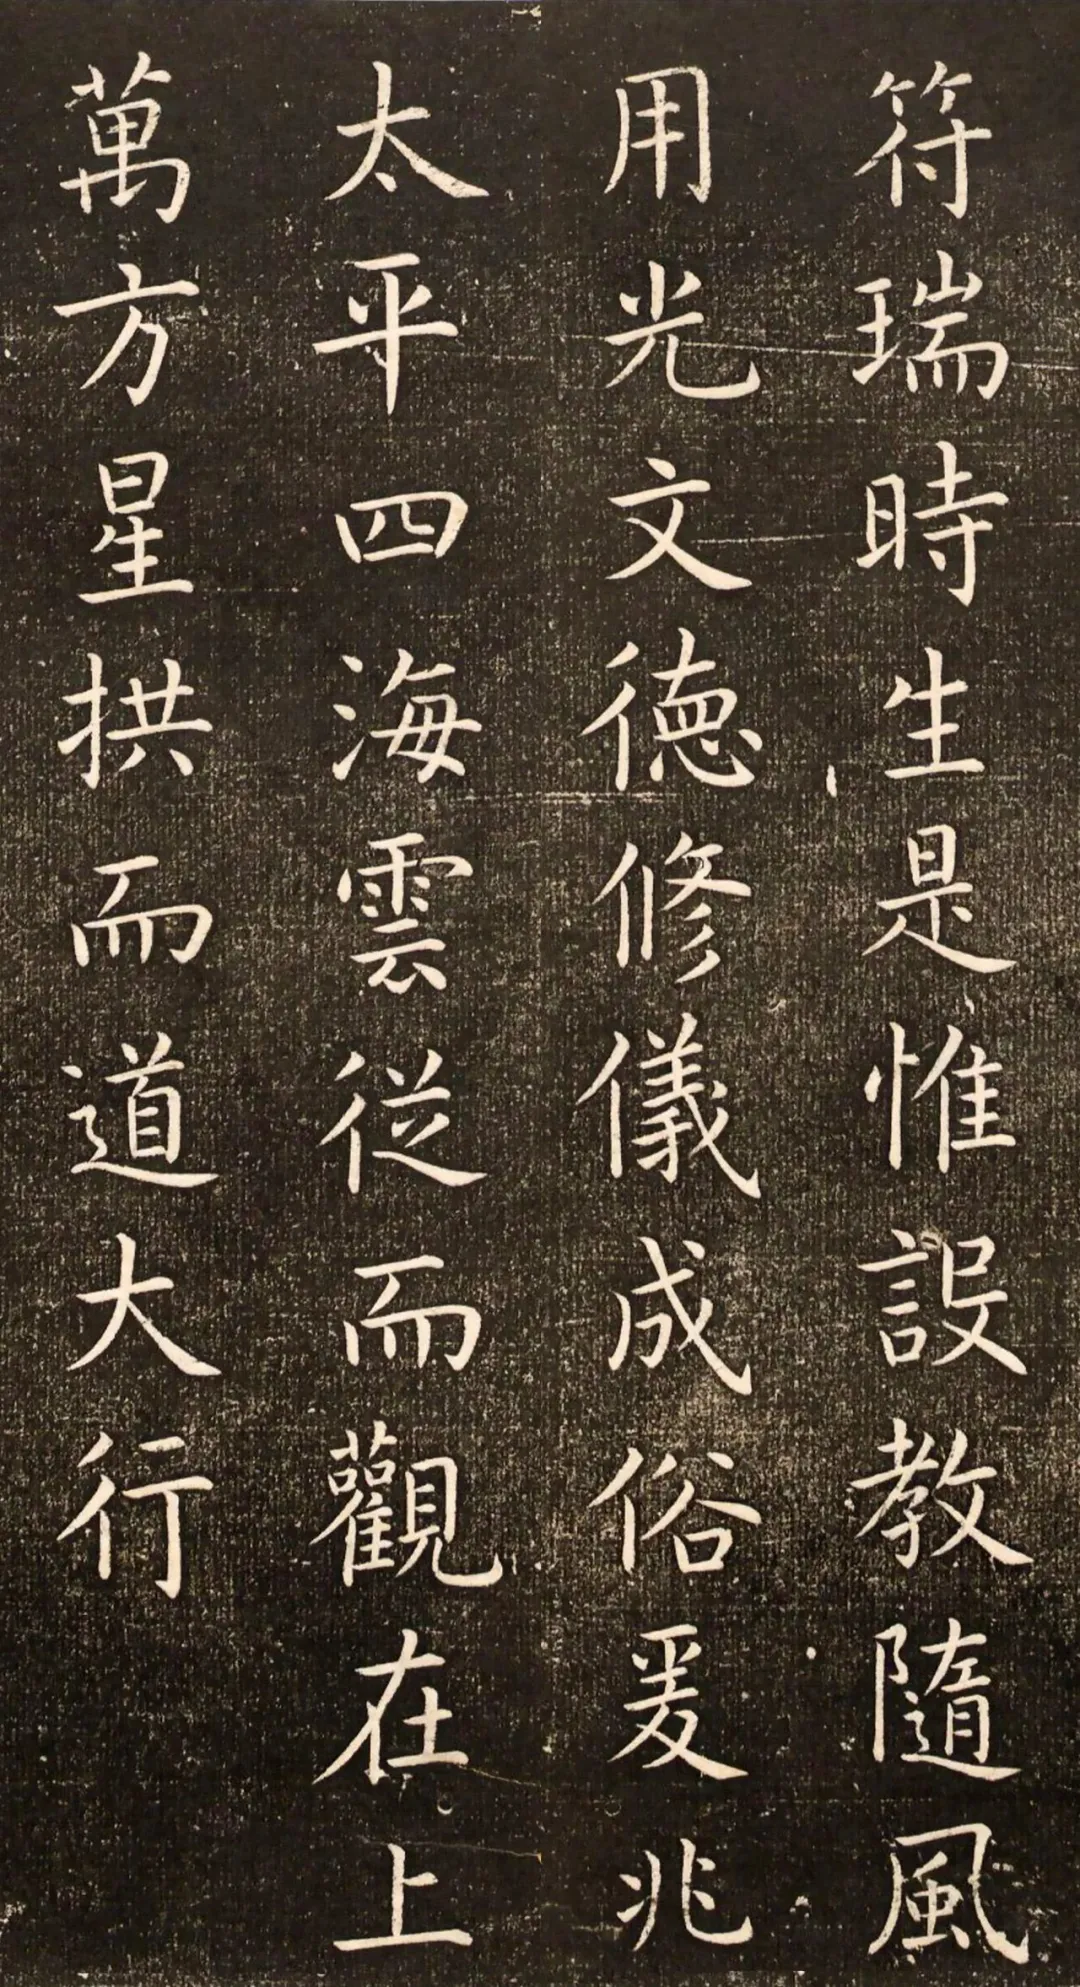 符瑞時生是惟設教隨風
用光文德修儀成俗爰兆
太平四海雲従而觀在上
萬方星拱而道大行